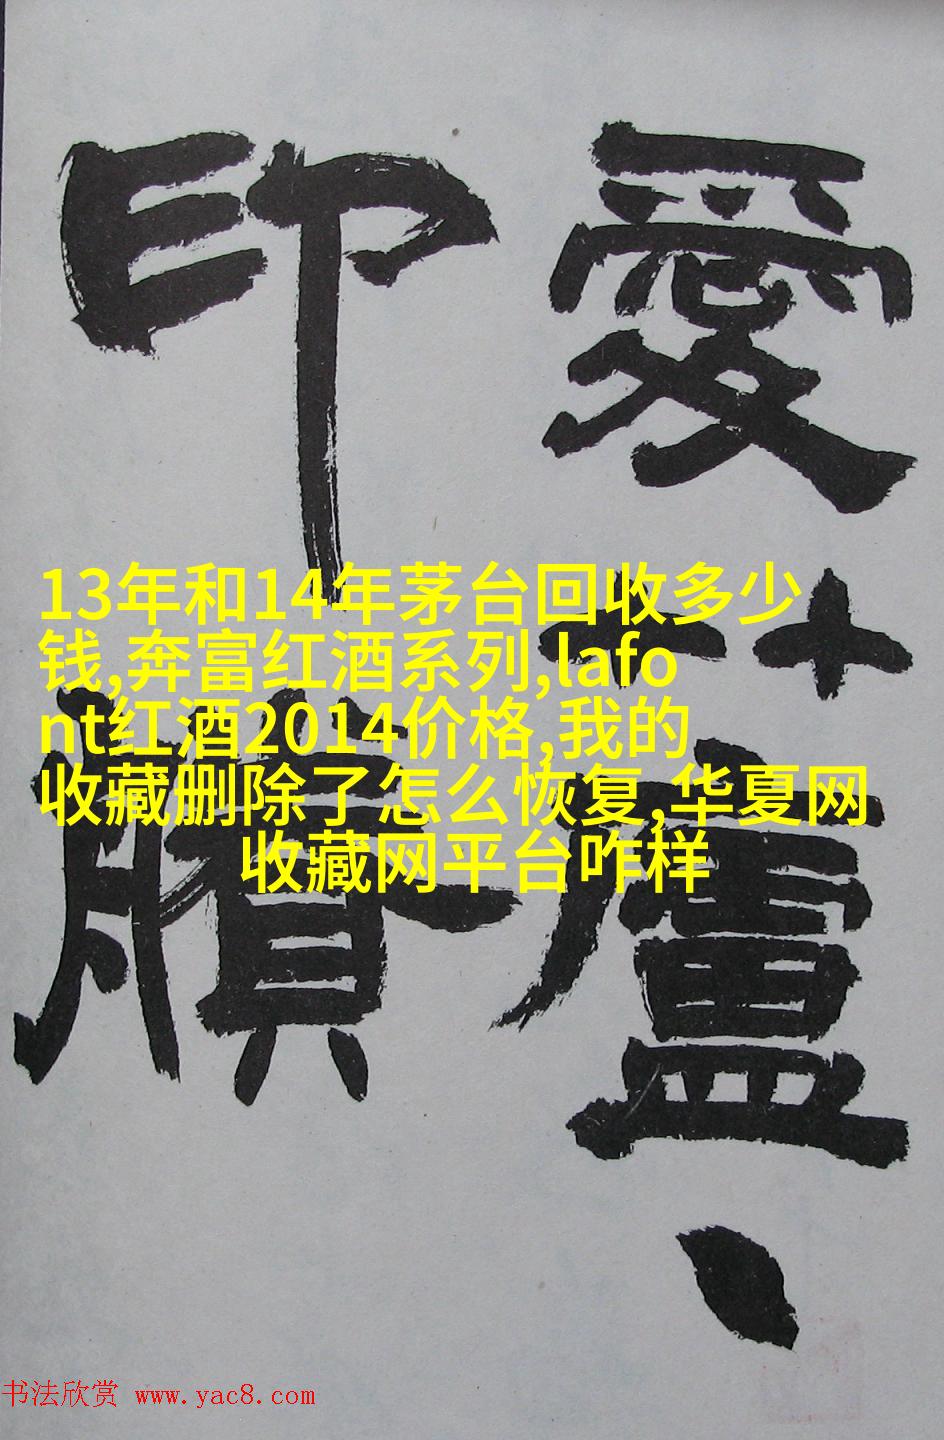 愛蘆
印
13年和14年茅台回收多少
钱,奔富红酒系列,lafo
nt红酒2014价格,我的
收藏删除了怎么恢复,华夏网
收藏网平台咋样
书法欣赏 www.yac8.com